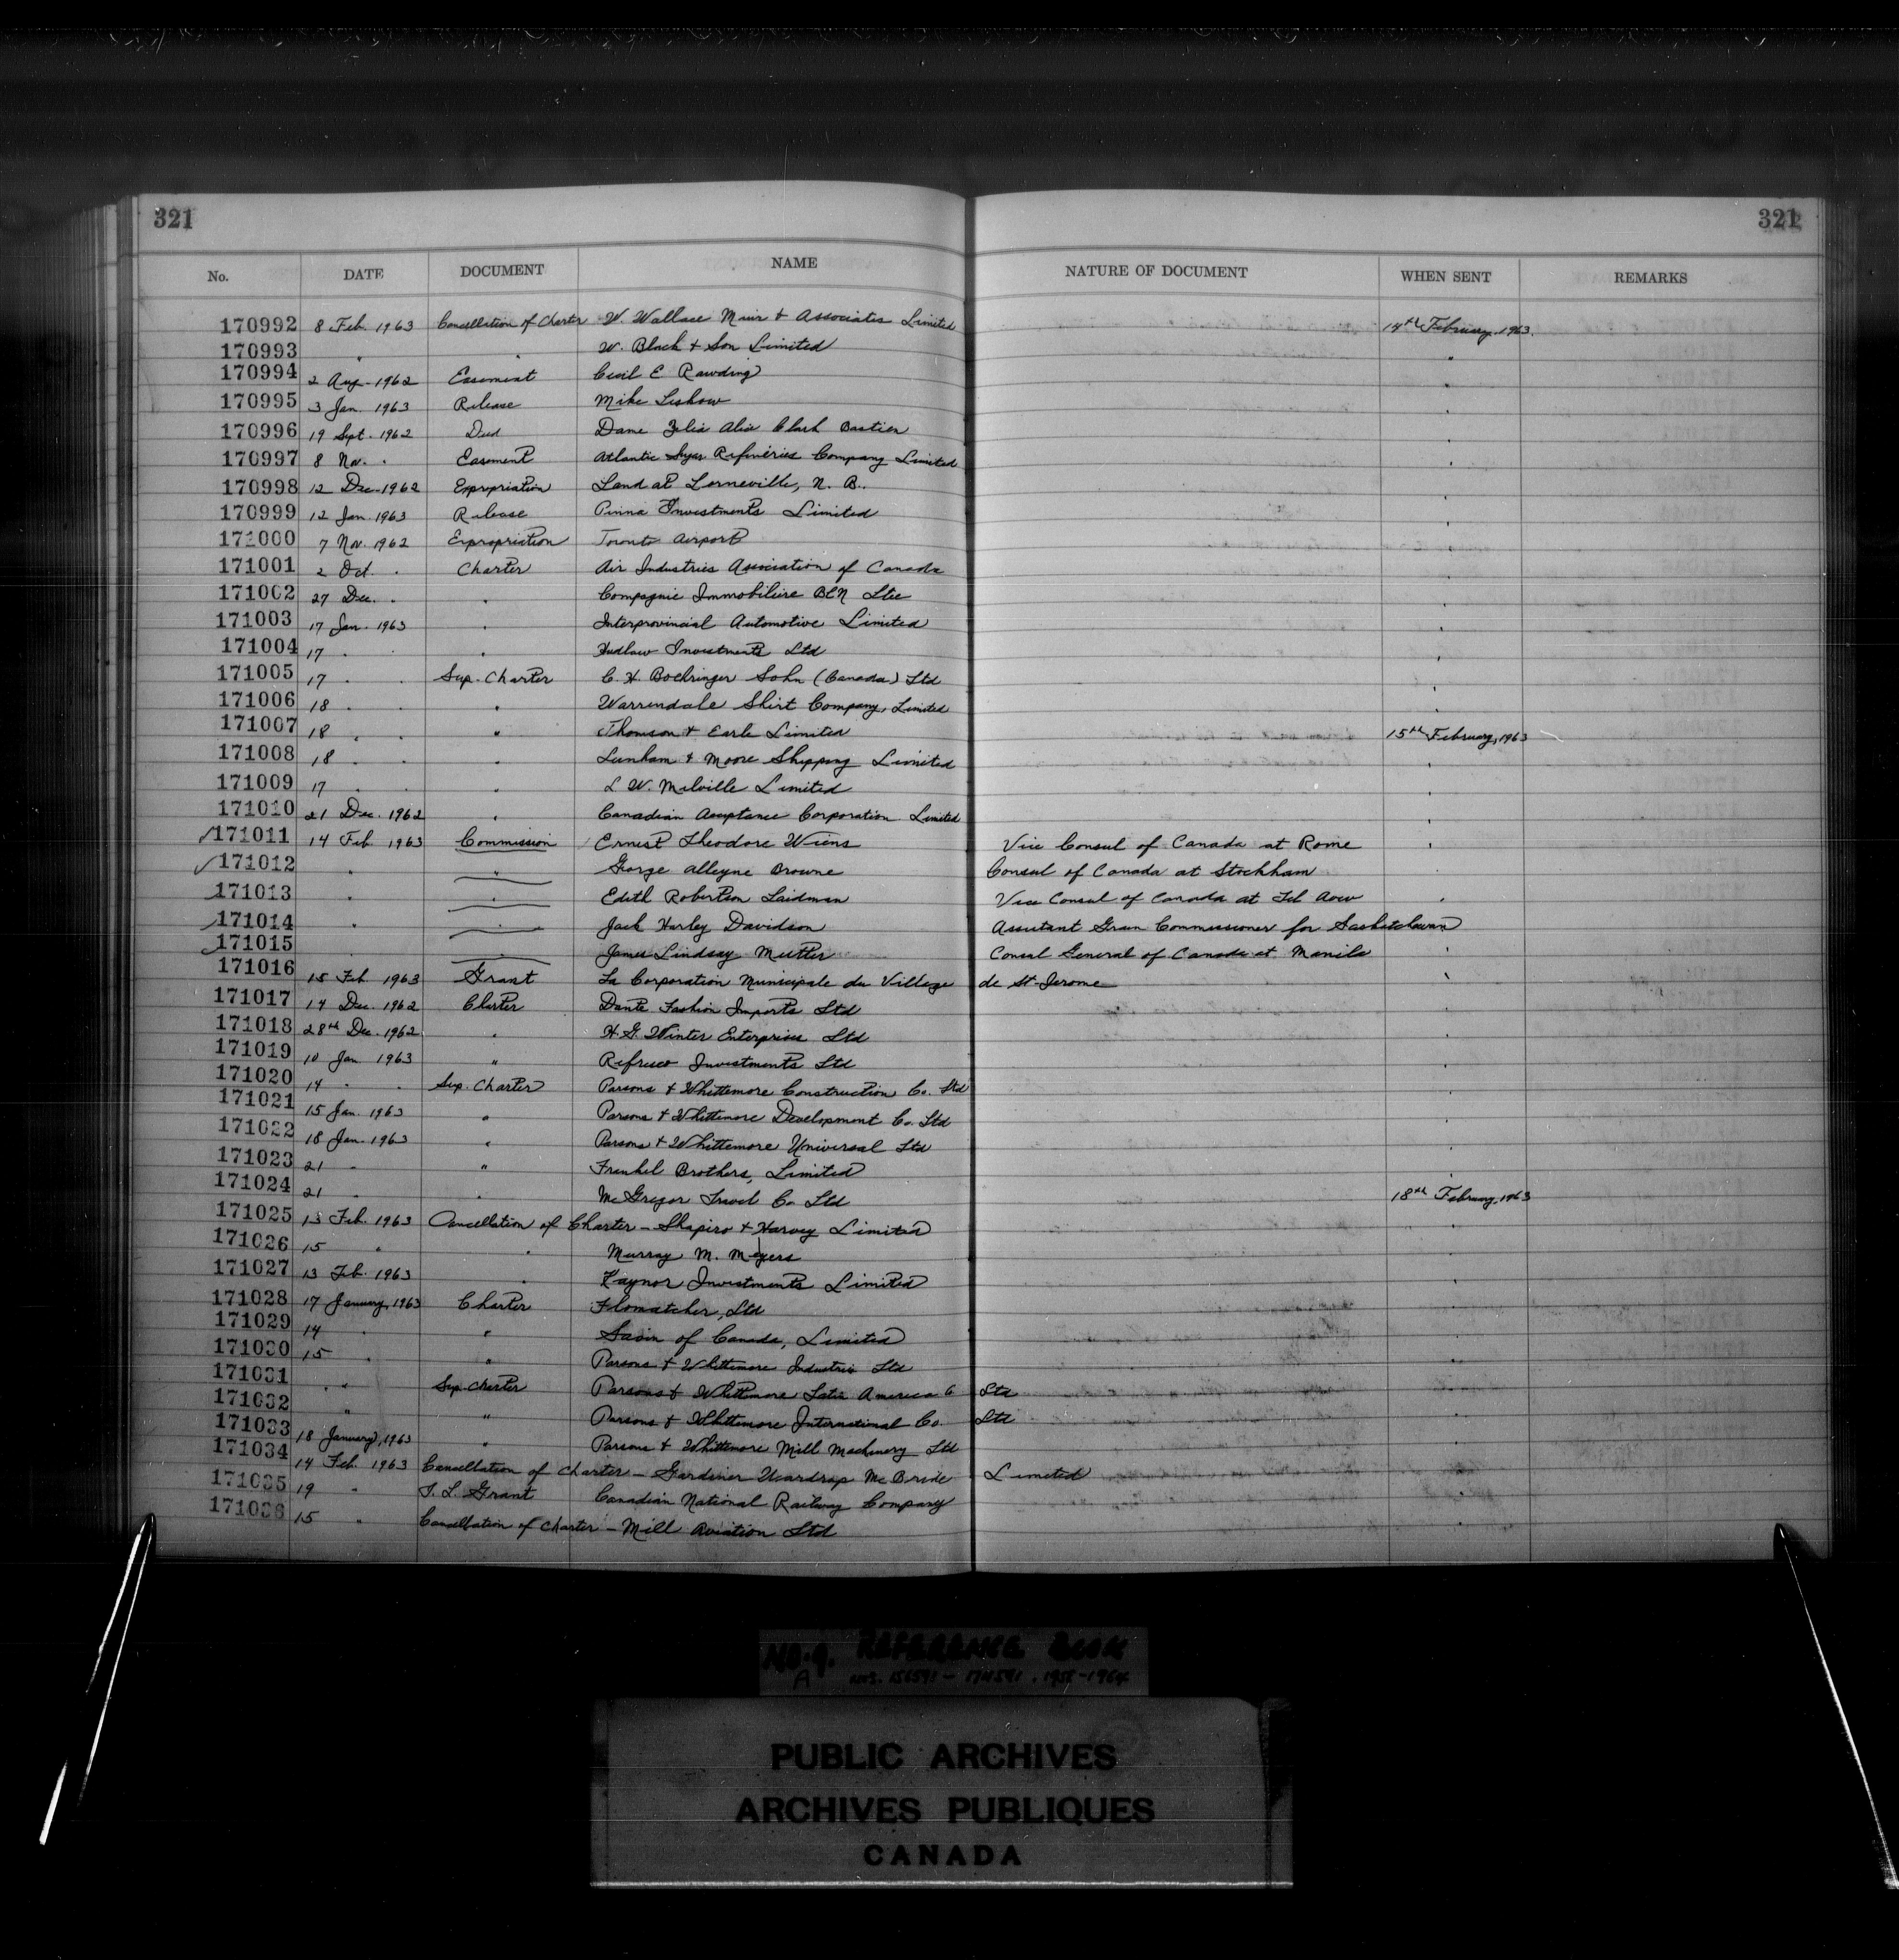 321 321
No. DATE DOCUMENT NAME NATURE OF DOCUMENT WHEN SENT REMARKS
170992 8 Feb. 1963 Cancellation of Charter W. Wallace Muir & Associates Limited 14th February, 1963.
170993 " " W. Black & Son Limited "
170994 2 Aug. 1962 Easement Cecil E. Rawding "
170995 3 Jan. 1963 Release Mike "
170996 19 Sept. 1962 Deed Dame Zelia Alia Clark Bastien "
170997 8 Nov. " Easement Atlantic Sugar Refineries Company Limited "
170998 12 Dec. 1962 Expropriation Land at Lorneville, N. B. "
170999 12 Jan. 1963 Release Pinna Investments Limited "
171000 7 Nov. 1962 Expropriation Toronto Airport "
171001 2 Oct. " Charter Air Industries Association of Canada "
171002 27 Dec. " " Compagnie Immobiliere BCN Ltee "
171003 17 Jan. 1963 " Interprovincial Automotive Limited "
171004 17 " " " Hudlaw Investments Ltd "
171005 17 " " Sup. Charter C. H. Boehringer Sohn (Canada) Ltd "
171006 18 " " " Warrendale Shirt Company, Limited "
171007 18 " " " Thomson & Earle Limited 15th February, 1963
171008 18 " " " Lunham & Moore Shipping Limited "
171009 17 " " " L. W. Melville Limited "
171010 21 Dec. 1962 " Canadian Acceptance Corporation Limited "
171011 14 Feb. 1963 Commission Ernest Theodore Wiens Vice Consul of Canada at Rome "
171012 " " George Alleyne Browne Consul of Canada at Stockham "
171013 " " Edith Robertson Laidman Vice Consul of Canada at Tel Aviv "
171014 " " Jack Harley Davidson Assistant Grain Commissioner for Saskatchewan
171015 " " James Lindsay Mutter Consul General of Canada at Manila "
171016 15 Feb. 1963 Grant La Corporation Municipale du Village de St-Jerome "
171017 14 Dec. 1962 Charter Dante Fashion Imports Ltd "
171018 28th Dec. 1962 " H. G. Winter Enterprises Ltd "
171019 10 Jan 1963 " Investments Ltd "
171020 14 " " Sup. Charter Parsons & Whittemore Construction Co. Ltd "
171021 15 Jan. 1963 " Parsons & Whittemore Development Co. Ltd "
171022 18 Jan. 1963 " Parsons & Whittemore Universal Ltd "
171023 21 " " Frenkel Brothers, Limited "
171024 21 " " McGregor Travel Co. Ltd 18th February, 1963
171025 13 Feb. 1963 Cancellation of Charter - Shapiro & Harvey Limited "
171026 15 " " Murray M. Meyers "
171027 13 Feb. 1963 " Kaynor Investments Limited "
171028 17 January, 1963 Charter Flomatcher, Ltd "
171029 14 " " Savin of Canada, Limited "
171030 15 " " Parsons & Whittemore Industries Ltd "
171031 " " Sup. Charter Parsons & Whittemore Latin America Co Ltd "
171032 " " Parsons & Whittemore International Co. Ltd "
171033 18 January, 1963 " Parsons & Whittemore Mill Machinery Ltd "
171034 14 Feb. 1963 Cancellation of Charter - Gardiner Wardrop McBride Limited "
171035 19 " T. L. Grant Canadian National Railway Company "
171036 15 " Cancellation of Charter - Mill Aviation Ltd "
NO. 9. REFERENCE BOOK
A NOS. 156591 - 174591 . 1956-1964
PUBLIC ARCHIVES
ARCHIVES PUBLIQUES
CANADA